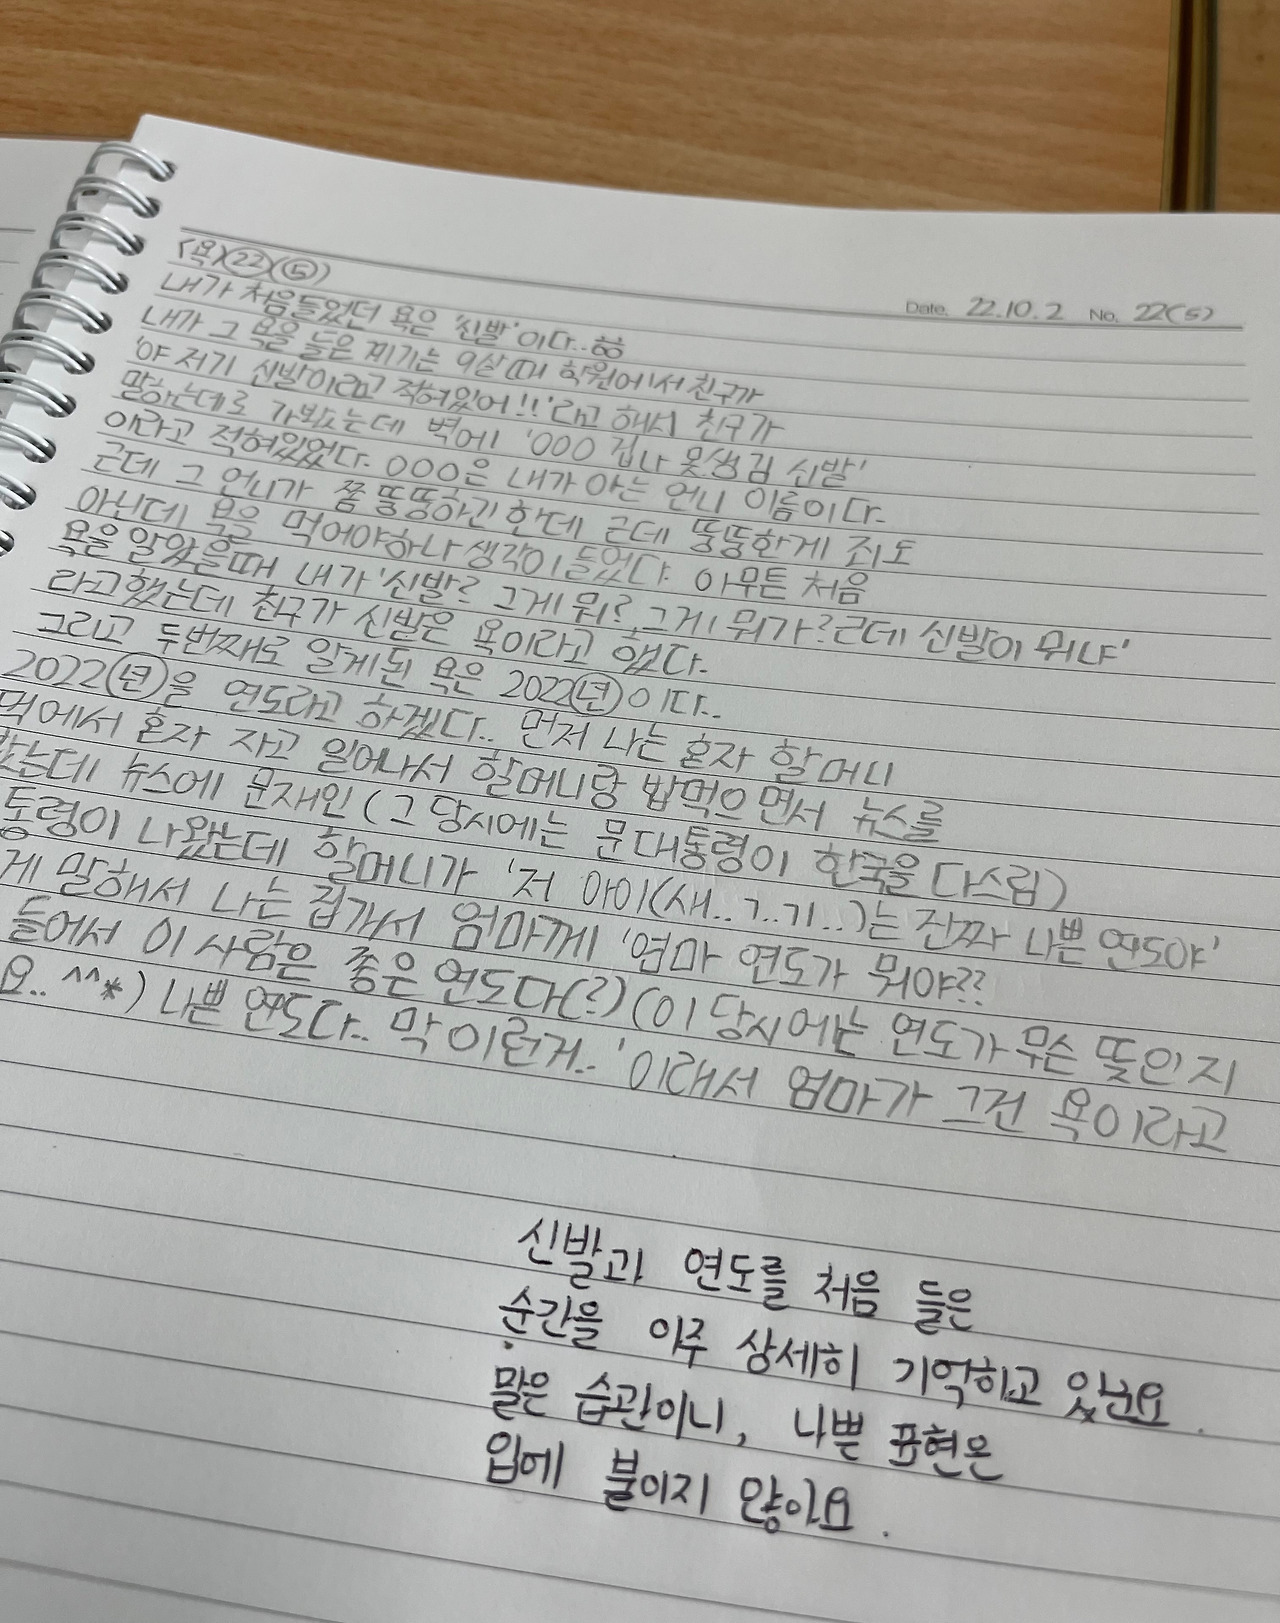 Date. 22.10.2 No. 22(5)
(욕)(22)(5)
내가 처음들었던 욕은 '신발'이다..
내가 그 욕을 들은 계기는 9살때 학원에서 친구가
'야 저기 신발이라고 적혀있어!!'라고 해서 친구가
말하는데로 가봤는데 벽에 '000 집나 못생김 신발'
이라고 적혀있었다. 000은 내가 아는 언니 이름이다.
근데 그 언니가 쫌 뚱뚱하긴 한데 근데 뚱뚱한게 죄도
아닌데 욕을 먹어야하나 생각이 들었다. 아무튼 처음
욕을 알았을때 내가 '신발? 그게 뭐? 그게 뭐가? 근데 신발이 뭐냐'
라고했는데 친구가 신발은 욕이라고 했다.
그리고 두번째로 알게된 욕은 2022년이다..
2022년을 연도라고 하겠다.. 먼저 나는 혼자 할머니
에서 혼자 자고 일어나서 할머니랑 밥먹으면서 뉴스를
는데 뉴스에 문재인 (그 당시에는 문대통령이 한국을 다스림)
통령이 나왔는데 할머니가 '저 아이(새..ㄱ..기..)는 진짜 나쁜 연도야'
게 말해서 나는 집가서 엄마께 '엄마 연도가 뭐야??
들어서 이 사람은 좋은 연도다(?) (이 당시에는 연도가 무슨 뜻인지
요.. ^^*) 나쁜 연도다.. 막 이런거..' 이래서 엄마가 그건 욕이라고
신발과 연도를 처음 들은
순간을 아주 상세히 기억하고 있군요.
말은 습관이니, 나쁜 표현은
입에 붙이지 않아요.